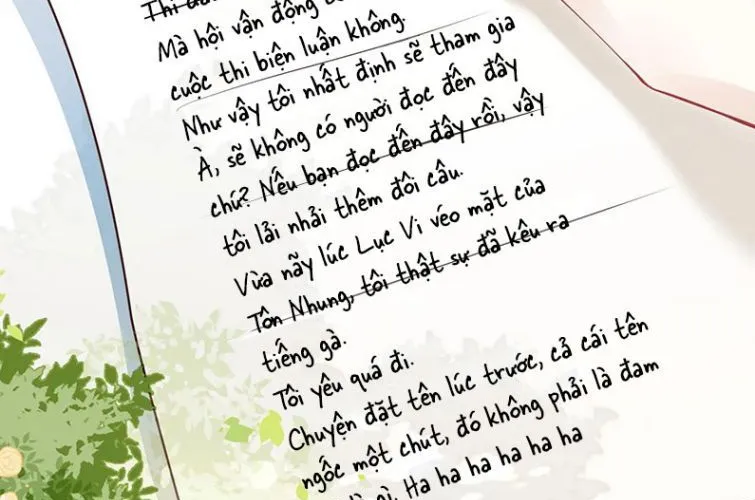 Mà hội vận động
cuộc thi biện luận không.
Như vậy tôi nhất định sẽ tham gia
À, sẽ không có người đọc đến đây
chứ? Nếu bạn đọc đến đây rồi, vậy
tôi lải nhải thêm đôi câu.
Vừa nãy lúc Lục Vi véo mặt của
Tôn Nhung, tôi thật sự đã kêu ra
tiếng gà.
Tôi yêu quá đi.
Chuyện đặt tên lúc trước, cả cái tên
ngốc một chút, đó không phải là đam
gì. Ha ha ha ha ha ha